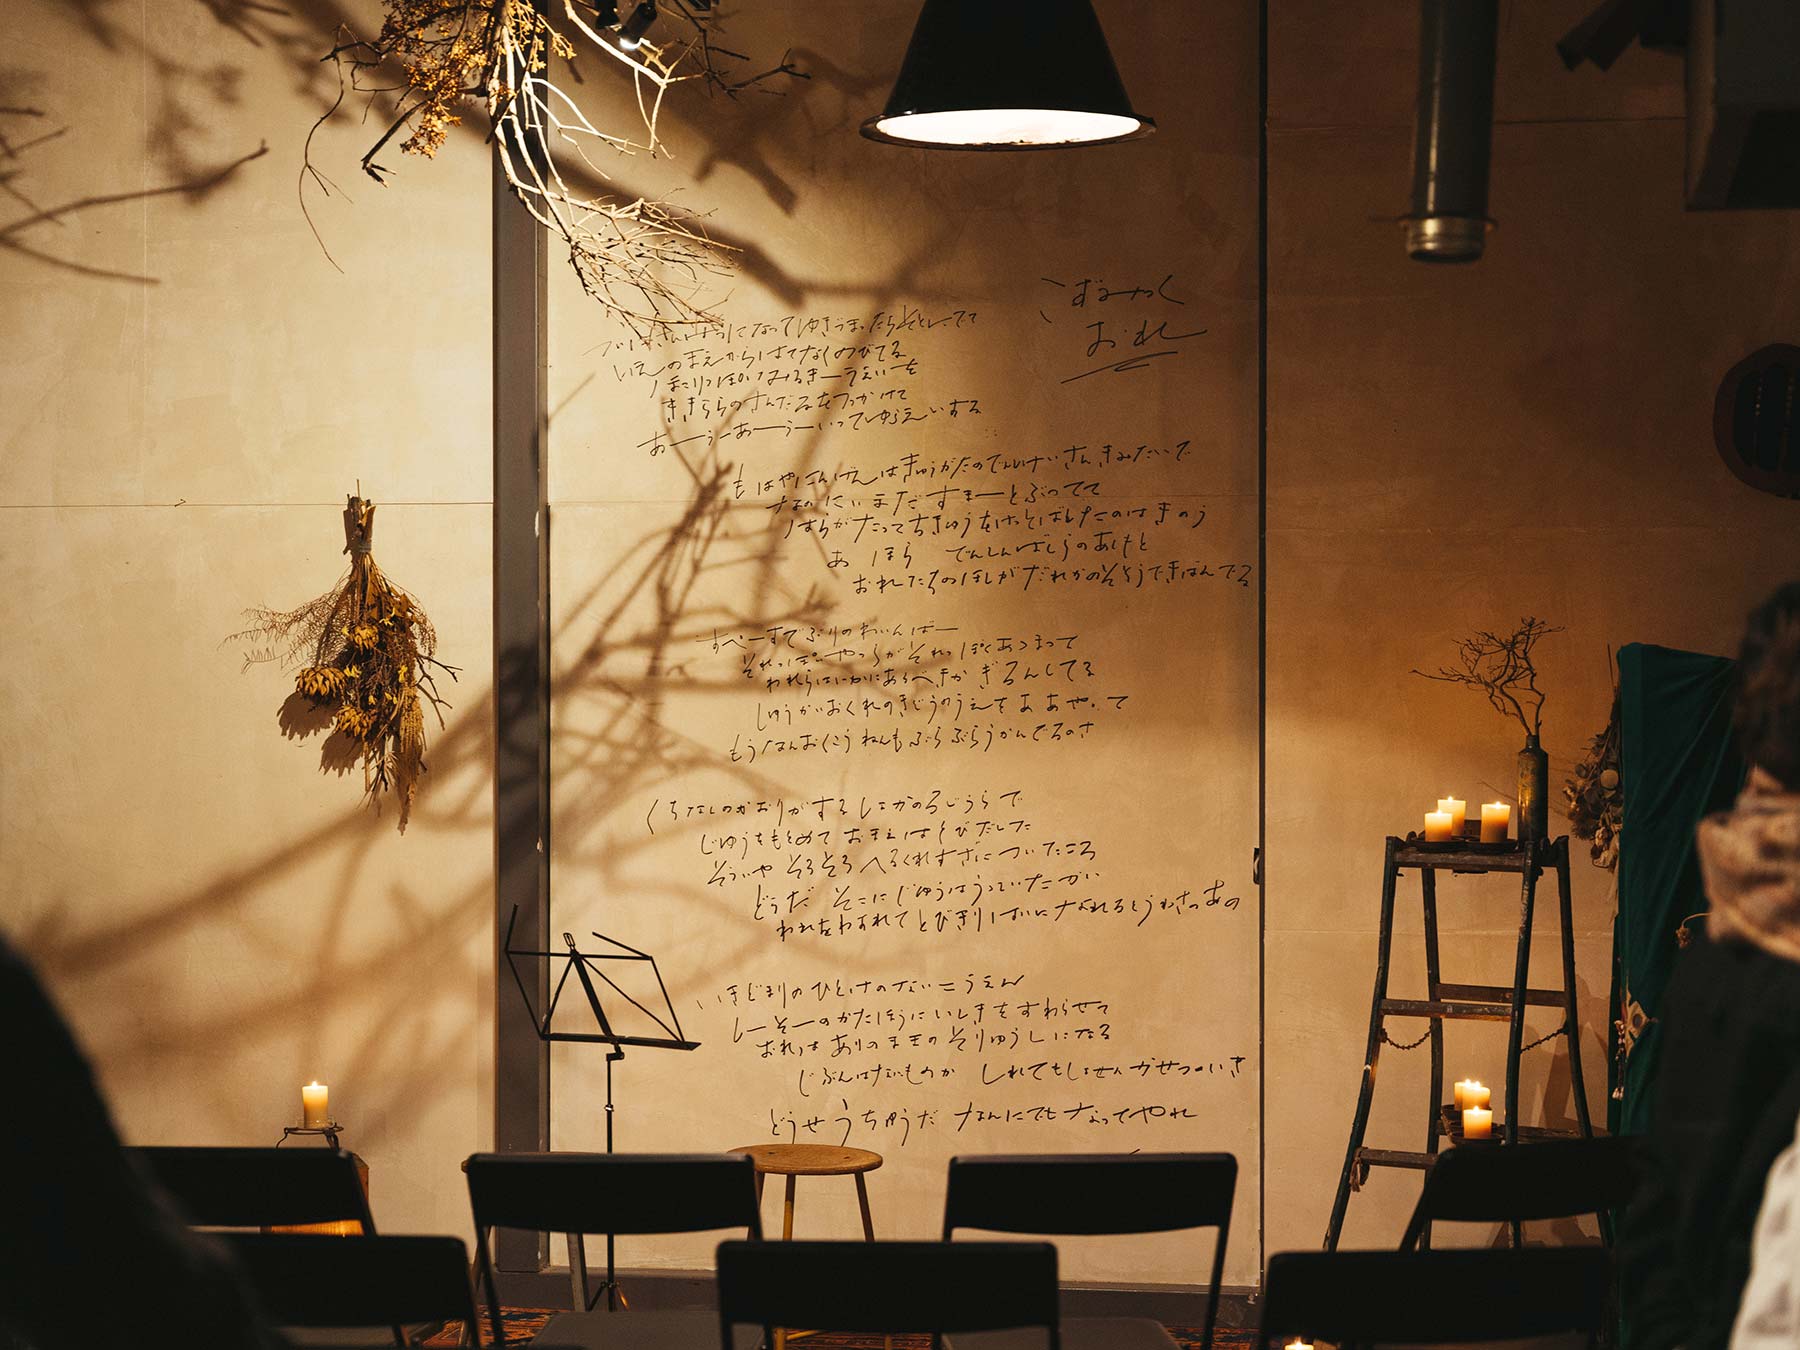 ずみやっく
おれ
になってゆきうまったらそとにでて
いえのまえからはてなくのびてる
ほこりっぽい
きららのさんだるをつっかけて
あーうーあーうーいってゆうえいする
もはやにんげんはきゅうがたのでんけいさんきみたいで
なのにいまだすまーとぶってて
はらがたってちきゅうをけっとばしたのはきのう
あ ほら でんしんばしらのあしもと
おれたちのほしがだれかのそとうできばんでる
すぺーすでぶりのわいんばー
それっぽいやつらがそれっぽくあつまって
われらはいかにあるべきか ぎろんしてる
しゅうかいおくれのきどうのうえをああやって
もうなんおくこうねんもぶらぶらうかんでるのさ
くちなしのかおりがする
じゆうをもとめておまえはとびだした
そういや そろそろ へるくれすざについたころ
どうだ そこにじゆうはうっていたかい
われをわすれてとびきりはいになれるとうわさのあの
いきどまりのひとけのないこうえん
しーそーのかたほうにいしきをすわらせて
おれはありのままのそりゅうしになる
じぶんはないものか しれてもしょせんかせつのいき
どうせうちゅうだ なんにでもなってやれ